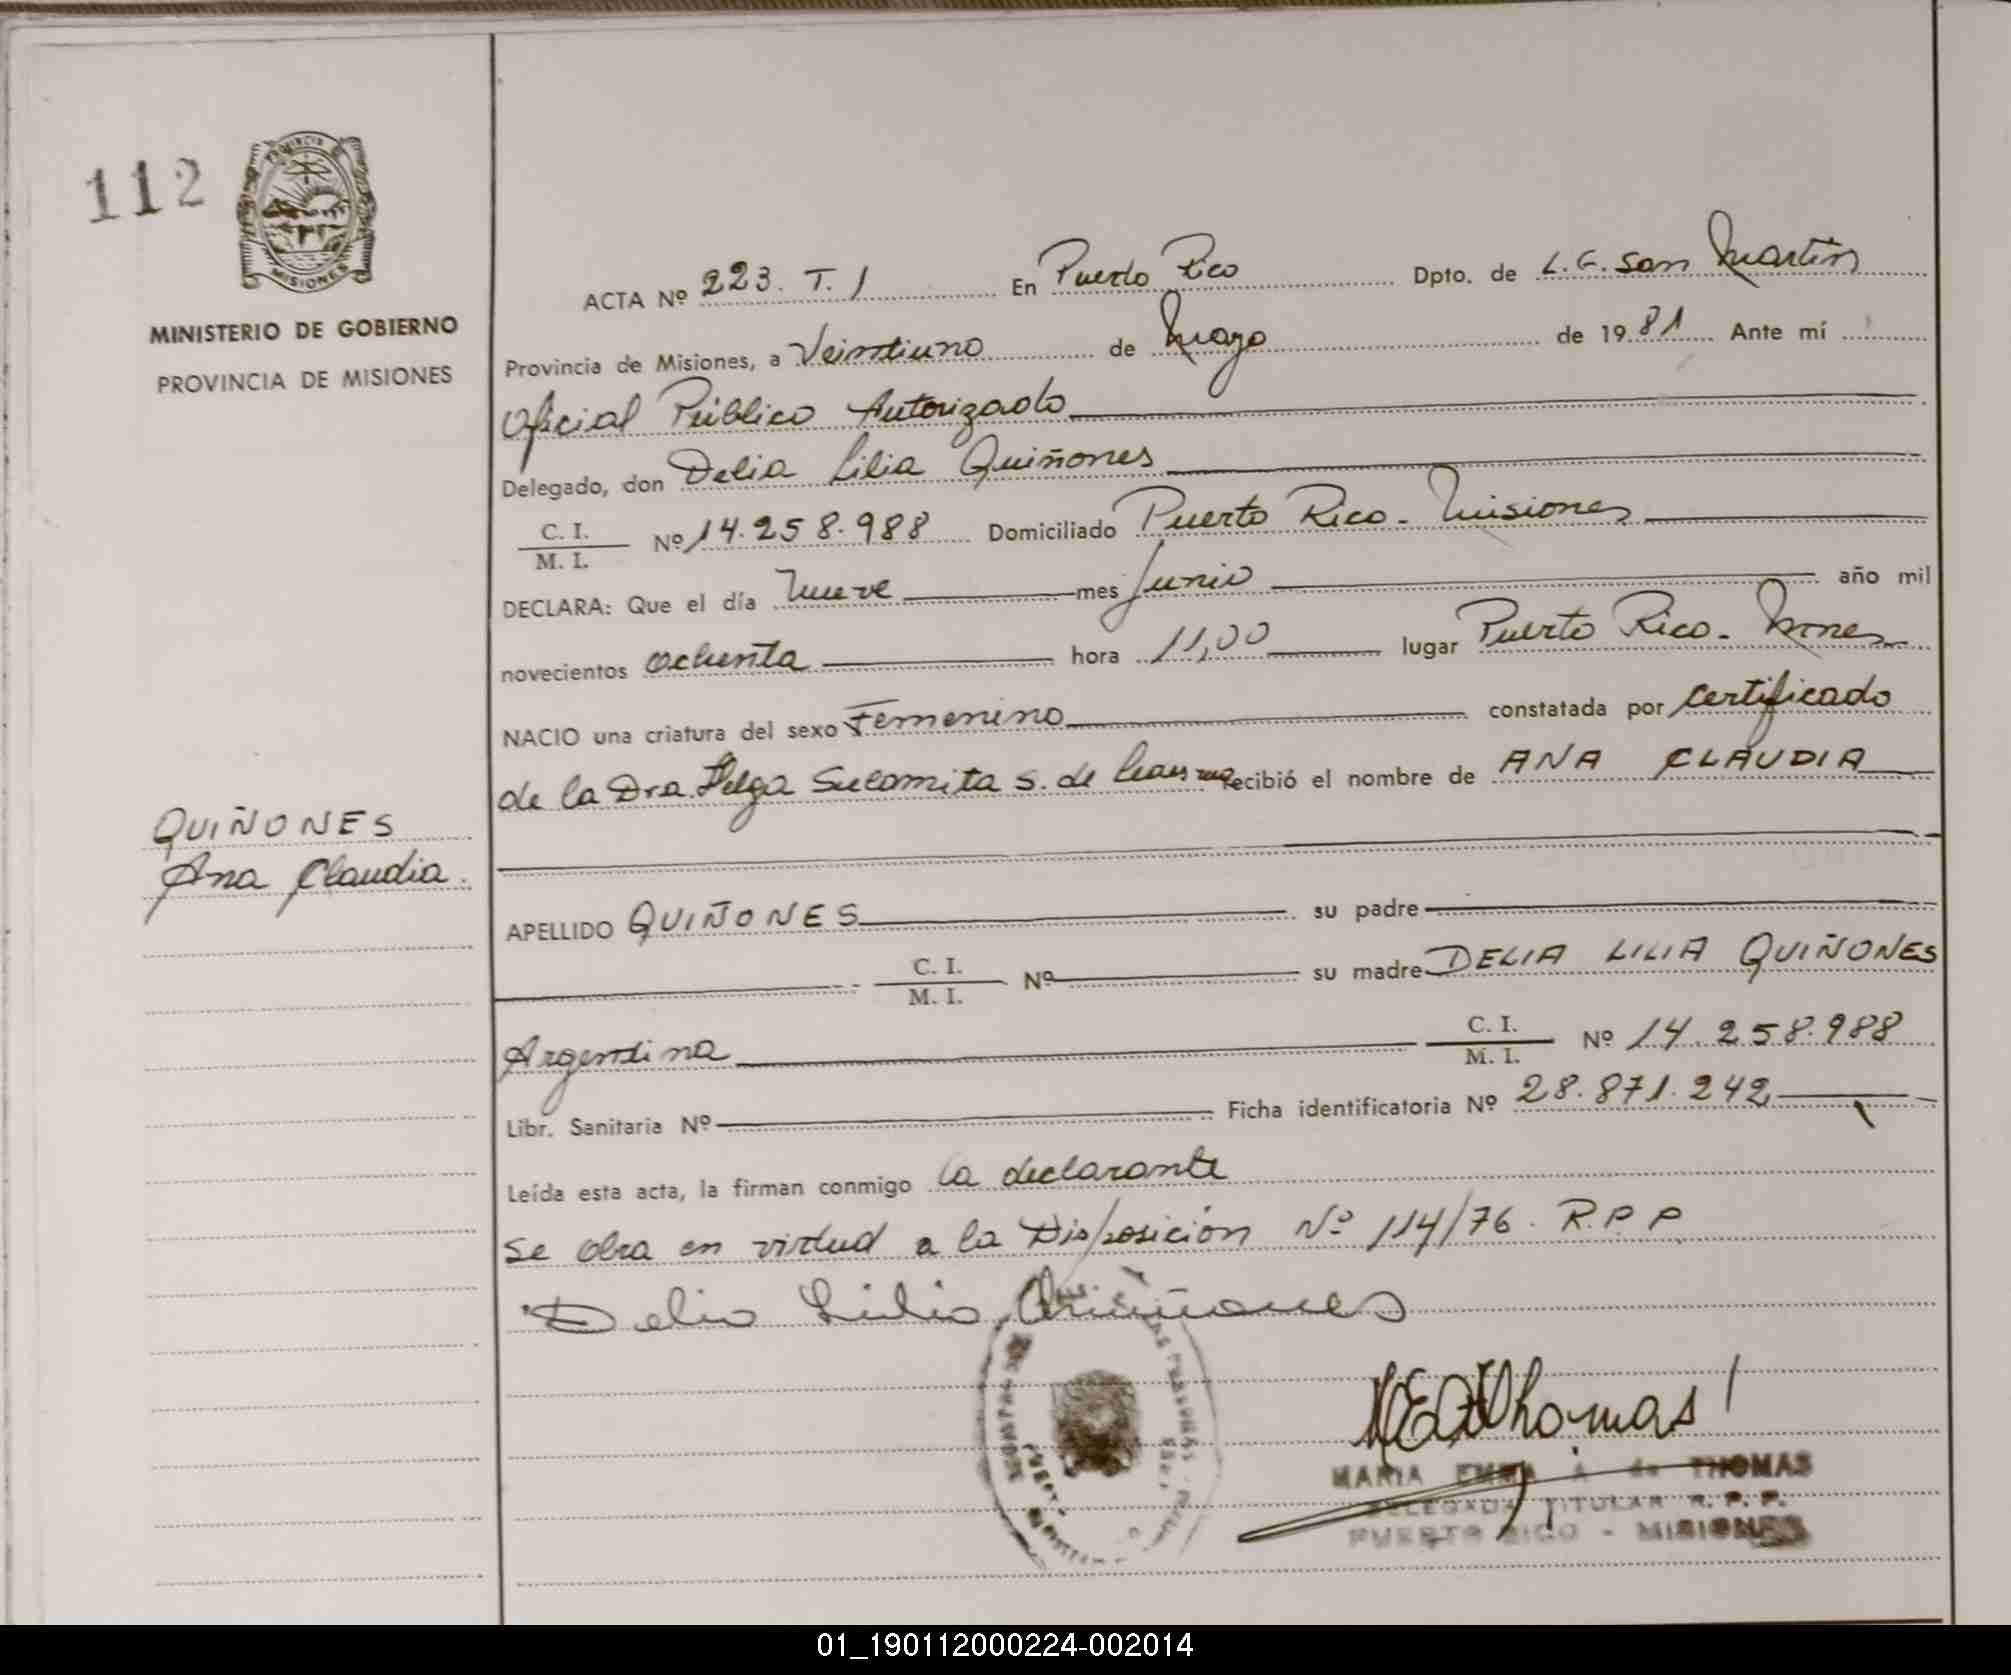 112
PROVINCIA DE
MISIONES
MINISTERIO DE GOBIERNO
PROVINCIA DE MISIONES
QUIÑONES
Ana Claudia.
ACTA Nº 223. T. 1 En Puerto Rico Dpto. de L.G. San Martin
Provincia de Misiones, a Veintiuno de Mayo de 1981 Ante mí
Oficial Público Autorizado
Delegado, don Delia Lilia Quiñones
C. I.
M. I. Nº 14.258.988 Domiciliado Puerto Rico - Misiones
DECLARA: Que el día Nueve mes Junio año mil
novecientos ochenta hora 11,00 lugar Puerto Rico - Mnes
NACIO una criatura del sexo Femenino constatada por certificado
de la Dra. Helga Sulamita S. de recibió el nombre de ANA CLAUDIA
APELLIDO QUIÑONES su padre
C. I.
M. I. Nº su madre DELIA LILIA QUIÑONES
Argentina C. I.
M. I. Nº 14.258.988
Libr. Sanitaria Nº Ficha identificatoria Nº 28.871.242
Leída esta acta, la firman conmigo la declarante
se obra en virtud a la Disposición Nº 114/76. R.P.P
Delia Lilia Quiñones
MEAdThomas
MARIA EMMA A. de THOMAS
DELEGADA TITULAR R. P. P.
PUERTO RICO - MISIONES
01_190112000224-002014